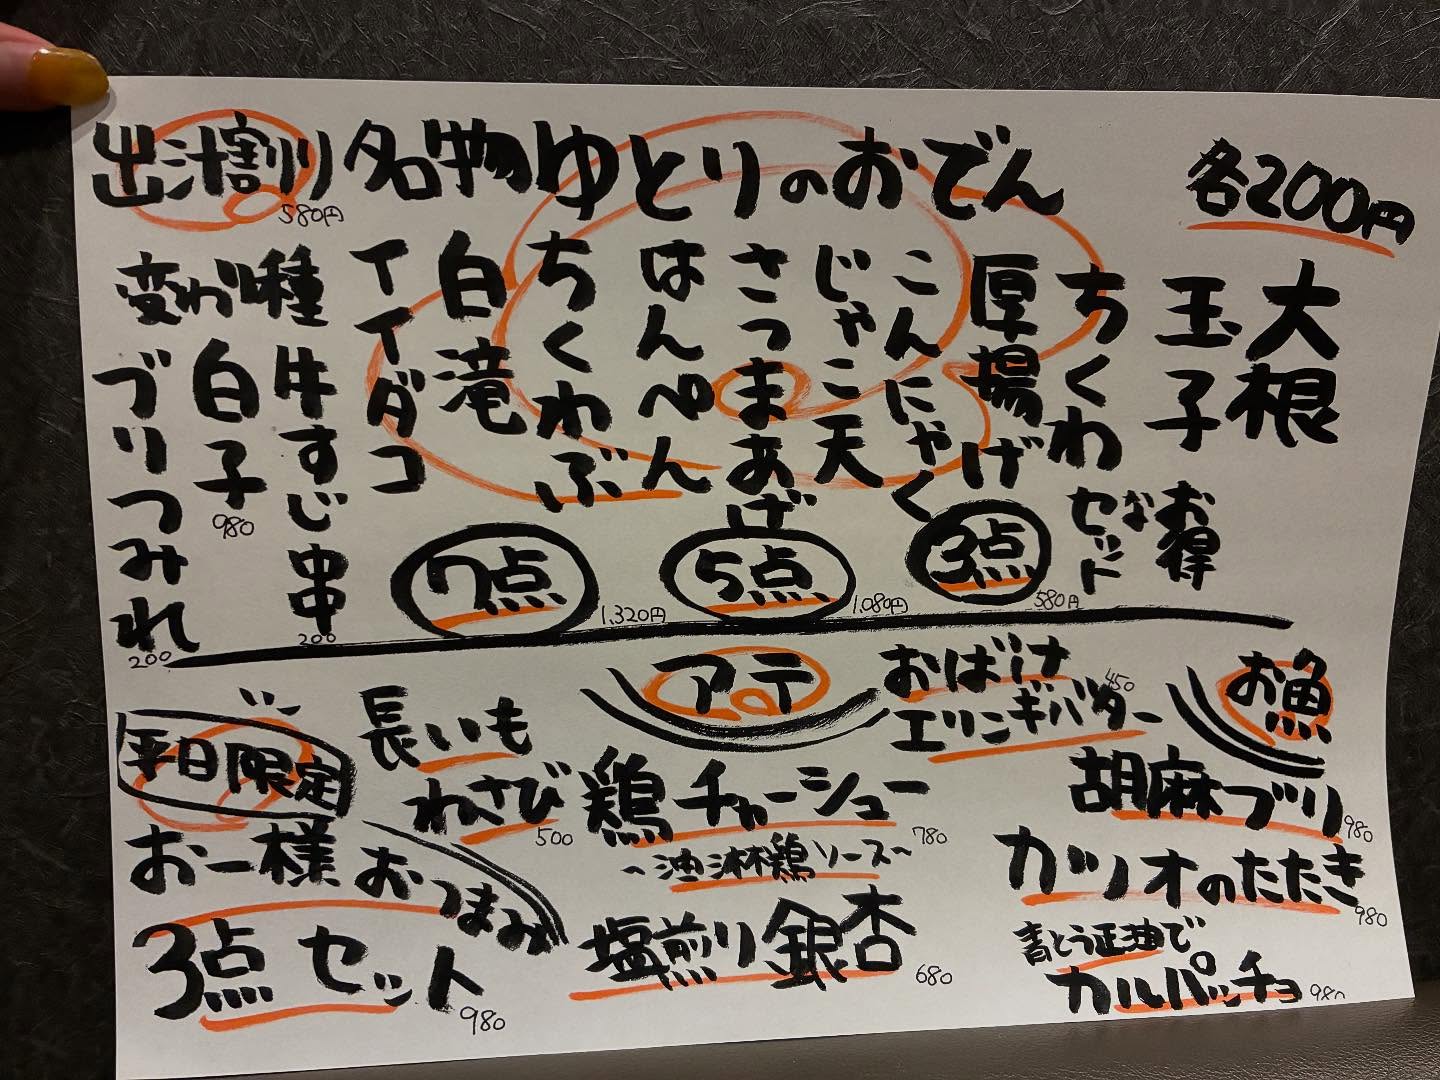 出汁割り 580円
名物ゆとりのおでん
各200円
大根
玉子
ちくわ
厚揚げ
こんにゃく
じゃこ天
さつまあげ
はんぺん
ちくわぶ
白滝
イイダコ
変わり種
牛すじ串 200
白子 980
ブリつみれ 200
お得なセット
3点 580円
5点 1,080円
7点 1,320円
お魚
胡麻ブリ 980
カツオのたたき 980
青とう正油で
カルパッチョ 980
アテ
おばけ
エリンギバター 450
鶏チャーシュー 780
～油淋鶏ソース～
塩煎り銀杏 680
長いも
わさび 500
平日限定
お一様おつまみ
3点セット 980